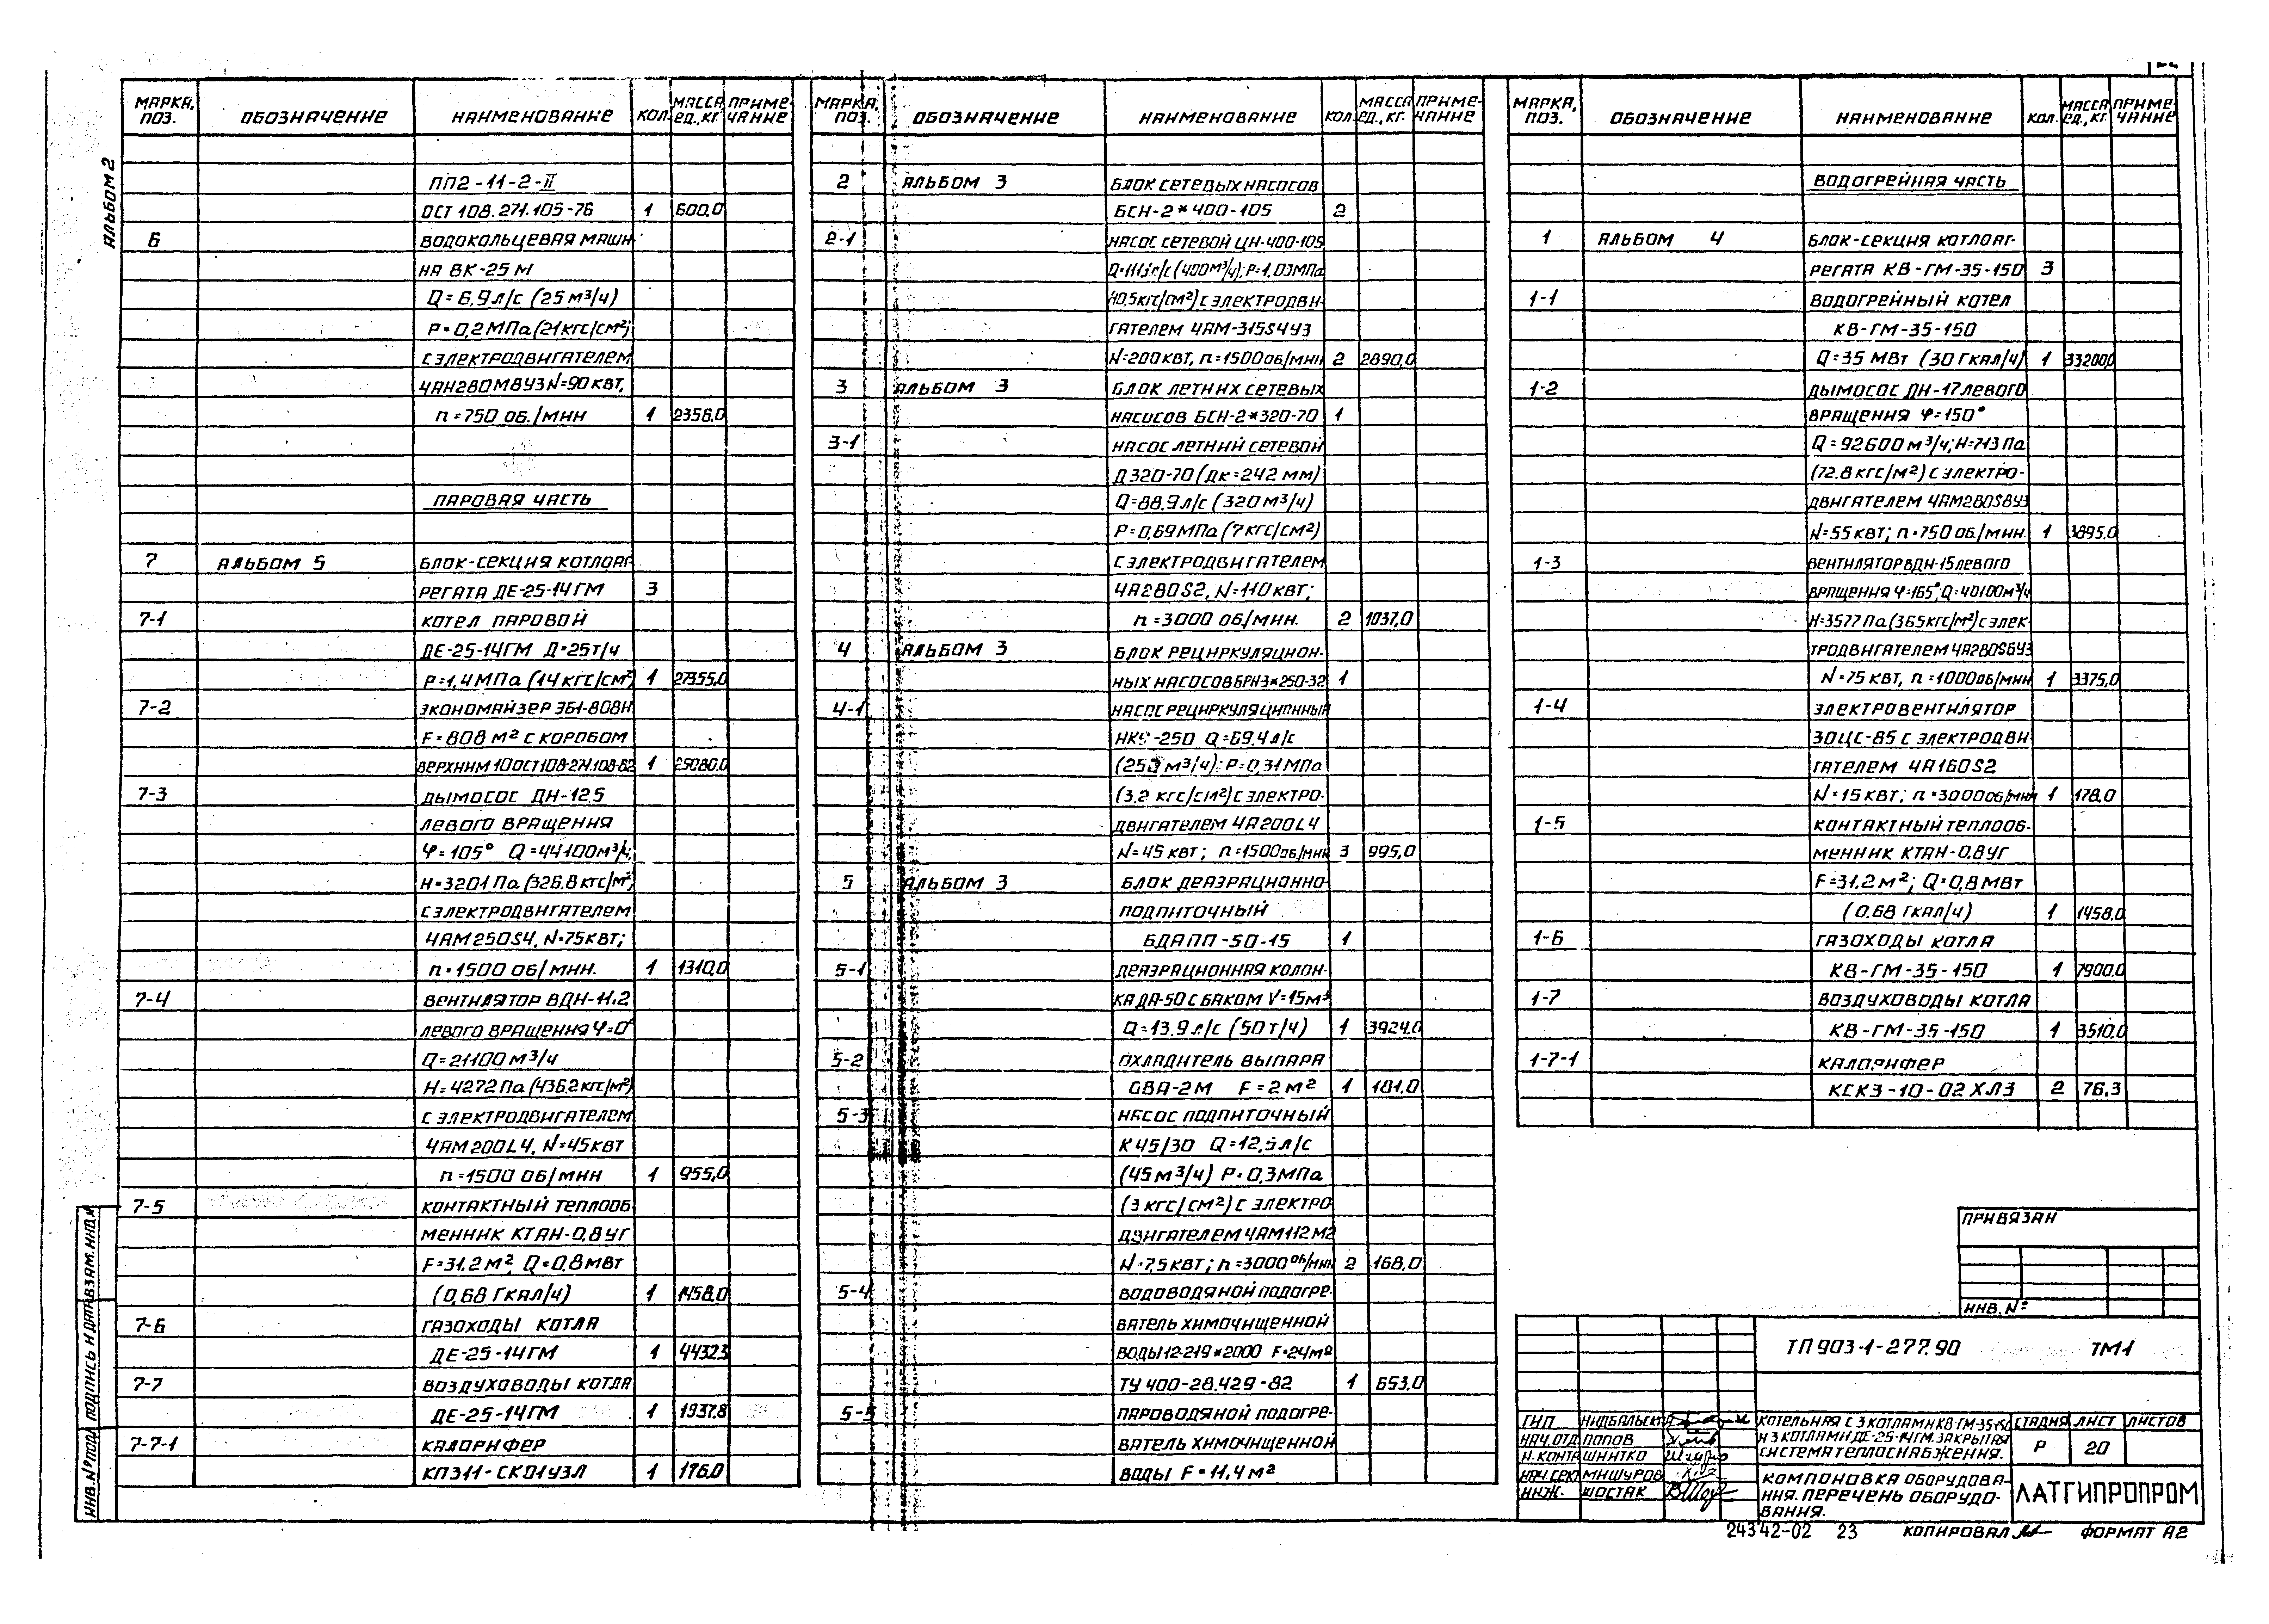 АЛЬБОМ 2
МАРКА, ПОЗ. ОБОЗНАЧЕНИЕ НАИМЕНОВАНИЕ КОЛ. МАССА ЕД., КГ. ПРИМЕЧАНИЕ
ПП2-11-2-II
ОСТ 108.271.105-76 1 600,0
6 ВОДОКОЛЬЦЕВАЯ МАШИ-
НА ВК-25 М
Q=6,9 Л/С (25 М³/Ч)
Р=0,2 МПа (21 КГС/СМ²)
С ЭЛЕКТРОДВИГАТЕЛЕМ
4АН280М8У3 N=90 КВТ,
n=750 ОБ./МИН 1 2358,0
ПАРОВАЯ ЧАСТЬ
7 АЛЬБОМ 5 БЛОК-СЕКЦИЯ КОТЛОАГ-
РЕГАТА ДЕ-25-14ГМ 3
7-1 КОТЕЛ ПАРОВОЙ
ДЕ-25-14ГМ Д=25Т/Ч
Р=1,4 МПа (14 КГС/СМ²) 1 27355,0
7-2 ЭКОНОМАЙЗЕР ЭБ1-808И
F=808 М² С КОРОБОМ
ВЕРХНИМ 10 ОСТ108.271.108-82 1 25080,0
7-3 ДЫМОСОС ДН-12.5
ЛЕВОГО ВРАЩЕНИЯ
φ=105° Q=44100 М³/Ч,
Н=3201 Па (326,8 КГС/М²)
С ЭЛЕКТРОДВИГАТЕЛЕМ
4АМ250S4, N=75 КВТ;
n=1500 ОБ/МИН. 1 1310,0
7-4 ВЕНТИЛЯТОР ВДН-11.2
ЛЕВОГО ВРАЩЕНИЯ φ=0°
Q=21100 М³/Ч
Н=4272 Па (436,2 КГС/М²)
С ЭЛЕКТРОДВИГАТЕЛЕМ
4АМ200L4, N=45 КВТ
n=1500 ОБ/МИН 1 955,0
7-5 КОНТАКТНЫЙ ТЕПЛООБ
МЕННИК КТАН-0,8 УГ
F=31,2 М², Q=0,8 МВТ
(0,68 ГКАЛ/Ч) 1 1458,0
7-6 ГАЗОХОДЫ КОТЛА
ДЕ-25-14ГМ 1 4432,3
7-7 ВОЗДУХОВОДЫ КОТЛА
ДЕ-25-14ГМ 1 1937,8
7-7-1 КАЛОРИФЕР
КПЭ11-СК01У3Л 1 176,0
МАРКА, ПОЗ. ОБОЗНАЧЕНИЕ НАИМЕНОВАНИЕ КОЛ. МАССА ЕД., КГ. ПРИМЕЧАНИЕ
2 АЛЬБОМ 3 БЛОК СЕТЕВЫХ НАСОСОВ
БСН-2*400-105 2
2-1 НАСОС СЕТЕВОЙ ЦН-400-105
Q=111,1 Л/С (400 М³/Ч); Р=1,03 МПа
(10,5 КГС/СМ²) С ЭЛЕКТРОДВИ-
ГАТЕЛЕМ 4АМ-315S4У3
N=200 КВТ, n=1500 ОБ/МИН 2 2890,0
3 АЛЬБОМ 3 БЛОК ЛЕТНИХ СЕТЕВЫХ
НАСОСОВ БСН-2*320-70 1
3-1 НАСОС ЛЕТНИЙ СЕТЕВОЙ
Д320-70 (ДК=242 ММ)
Q=88,9 Л/С (320 М³/Ч)
Р=0,69 МПа (7 КГС/СМ²)
С ЭЛЕКТРОДВИГАТЕЛЕМ
4А280S2, N=110 КВТ;
n=3000 ОБ/МИН. 2 1037,0
4 АЛЬБОМ 3 БЛОК РЕЦИРКУЛЯЦИОН-
НЫХ НАСОСОВ БРН3*250-32 1
4-1 НАСОС РЕЦИРКУЛЯЦИОННЫЙ
НКУ-250 Q=69,4 Л/С
(250 М³/Ч); Р=0,31 МПа
(3,2 КГС/СМ²) С ЭЛЕКТРО-
ДВИГАТЕЛЕМ 4А200L4
N=45 КВТ; n=1500 ОБ/МИН 3 995,0
5 АЛЬБОМ 3 БЛОК ДЕАЭРАЦИОННО-
ПОДПИТОЧНЫЙ
БДАПП-50-15 1
5-1 ДЕАЭРАЦИОННАЯ КОЛОН-
КА ДА-50 С БАКОМ V=15 М³
Q=13,9 Л/С (50 Т/Ч) 1 3924,0
5-2 ОХЛАДИТЕЛЬ ВЫПАРА
ОВА-2М F=2 М² 1 181,0
5-3 НАСОС ПОДПИТОЧНЫЙ
К45/30 Q=12,5 Л/С
(45 М³/Ч) Р=0,3 МПа
(3 КГС/СМ²) С ЭЛЕКТРО
ДВИГАТЕЛЕМ 4АМ112М2
N=7,5 КВТ; n=3000 ОБ/МИН 2 168,0
5-4 ВОДОВОДЯНОЙ ПОДОГРЕ-
ВАТЕЛЬ ХИМОЧИЩЕННОЙ
ВОДЫ 12-219*2000 F=24 М²
ТУ 400-28.429-82 1 653,0
5-5 ПАРОВОДЯНОЙ ПОДОГРЕ-
ВАТЕЛЬ ХИМОЧИЩЕННОЙ
ВОДЫ F=11,4 М²
МАРКА, ПОЗ. ОБОЗНАЧЕНИЕ НАИМЕНОВАНИЕ КОЛ. МАССА ЕД., КГ. ПРИМЕЧАНИЕ
ВОДОГРЕЙНАЯ ЧАСТЬ
1 АЛЬБОМ 4 БЛОК-СЕКЦИЯ КОТЛОАГ-
РЕГАТА КВ-ГМ-35-150 3
1-1 ВОДОГРЕЙНЫЙ КОТЕЛ
КВ-ГМ-35-150
Q=35 МВт (30 ГКАЛ/Ч) 1 33200,0
1-2 ДЫМОСОС ДН-17 ЛЕВОГО
ВРАЩЕНИЯ φ=150°
Q=92600 М³/Ч; Н=713 Па
(72.8 КГС/М²) С ЭЛЕКТРО-
ДВИГАТЕЛЕМ 4АМ280S8У3
N=55 КВТ; n=750 ОБ./МИН. 1 3895,0
1-3 ВЕНТИЛЯТОР ВДН-15 ЛЕВОГО
ВРАЩЕНИЯ φ=165°, Q=40100 М³/Ч
Н=3577 Па (365 КГС/М²) С ЭЛЕК
ТРОДВИГАТЕЛЕМ 4А280S6У3
N=75 КВТ, n=1000 ОБ/МИН 1 3375,0
1-4 ЭЛЕКТРОВЕНТИЛЯТОР
30ЦС-85 С ЭЛЕКТРОДВИ-
ГАТЕЛЕМ 4А160S2
N=15 КВТ; n=3000 ОБ/МИН 1 178,0
1-5 КОНТАКТНЫЙ ТЕПЛООБ-
МЕННИК КТАН-0.8 УГ
F=31,2 М²; Q=0,8 МВТ
(0,68 ГКАЛ/Ч) 1 1458,0
1-6 ГАЗОХОДЫ КОТЛА
КВ-ГМ-35-150 1 7900,0
1-7 ВОЗДУХОВОДЫ КОТЛА
КВ-ГМ-35-150 1 3510,0
1-7-1 КАЛОРИФЕР
КСК3-10-02 ХЛ3 2 76,3
ПРИВЯЗАН
ИНВ. №
ТП 903-1-277.90 ТМ1
ГИП НИДБАЛЬСКИЙ
НАЧ.ОТД ПОПОВ
Н.КОНТР ШНИТКО
НАЧ.СЕКТ МИШУРОВ
ИНЖ. ШОСТАК
КОТЕЛЬНАЯ С 3 КОТЛАМИ КВ-ГМ-35-150
И 3 КОТЛАМИ ДЕ-25-14ГМ. ЗАКРЫТАЯ
СИСТЕМА ТЕПЛОСНАБЖЕНИЯ.
СТАДИЯ ЛИСТ ЛИСТОВ
Р 20
КОМПОНОВКА ОБОРУДОВА-
НИЯ. ПЕРЕЧЕНЬ ОБОРУДО-
ВАНИЯ.
ЛАТГИПРОПРОМ
24342-02 23 КОПИРОВАЛ ФОРМАТ А2
ИНВ. № ПОДЛ. ПОДПИСЬ И ДАТА ВЗАМ. ИНВ. №